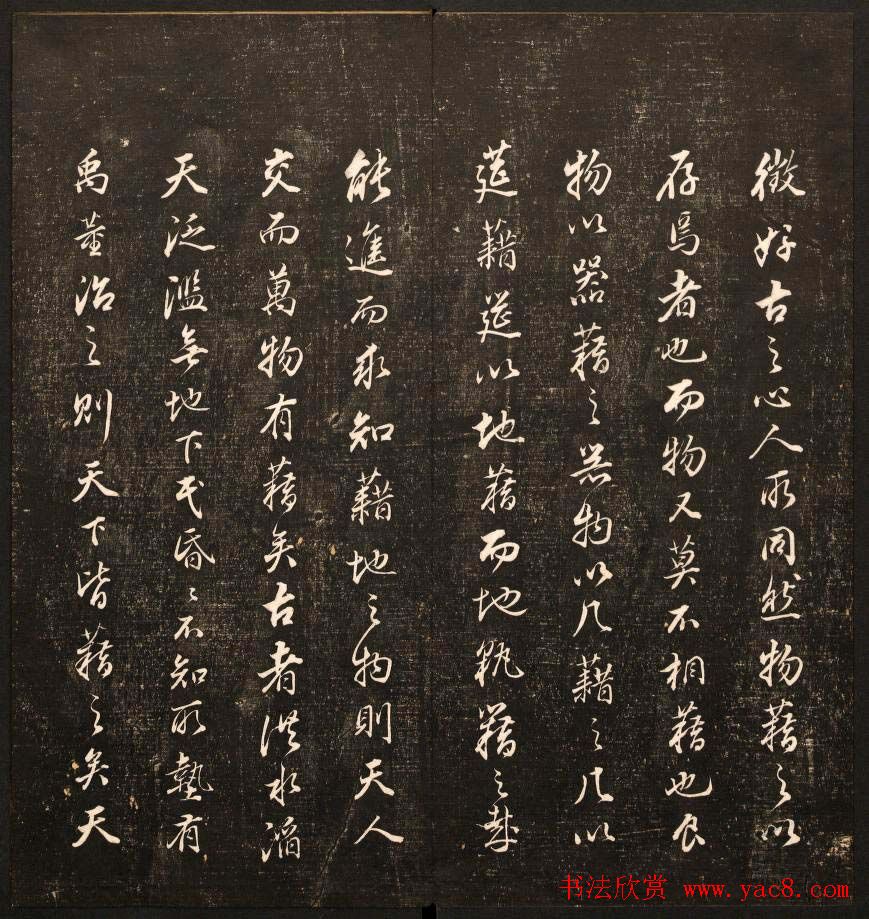 微好古之心人所同然物藉之以
存焉者也而物又莫不相藉也食
物以器藉之器物以几藉之几以
筵藉筵以地藉而地孰藉之哉
能進而求知藉地之物則天人
交而萬物有藉矣古者洪水滔
天泛濫無地下民昏〻不知所墊有
禹董治之則天下皆藉之矣天
书法欣赏 www.yac8.com